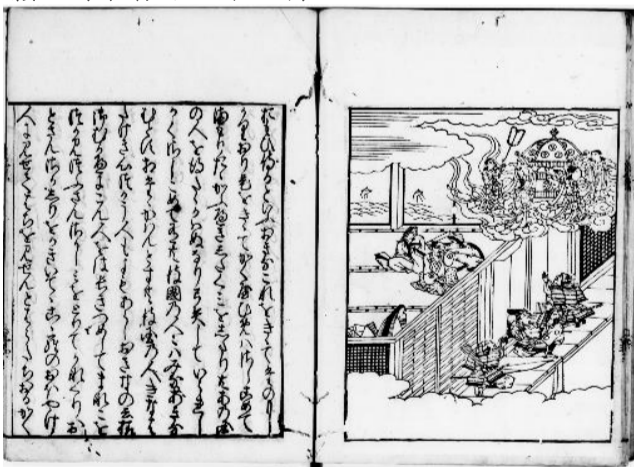 といふおきなこれをきゝてたのもし
かりおり是をきゝてかくや姫はさしこめて
まもりたゝかふへきしたくみをしたりともあの国
の人をえたゝかはぬなり弓矢していられし
かくさしこめてありとも彼国の人こはみなあきな
むとすあひたゝかはんとすとも彼国の人きなは
たけき心つかふ人もよもあらしおきなの云様
御むかへにこん人をはなかきつめしてまなこを
つかみつふさんさかかみをとりてかなくりお
とさんさかしりをかきいてゝこゝらのおほやけ
人に見せてはちをみせんとはらたちおるかく